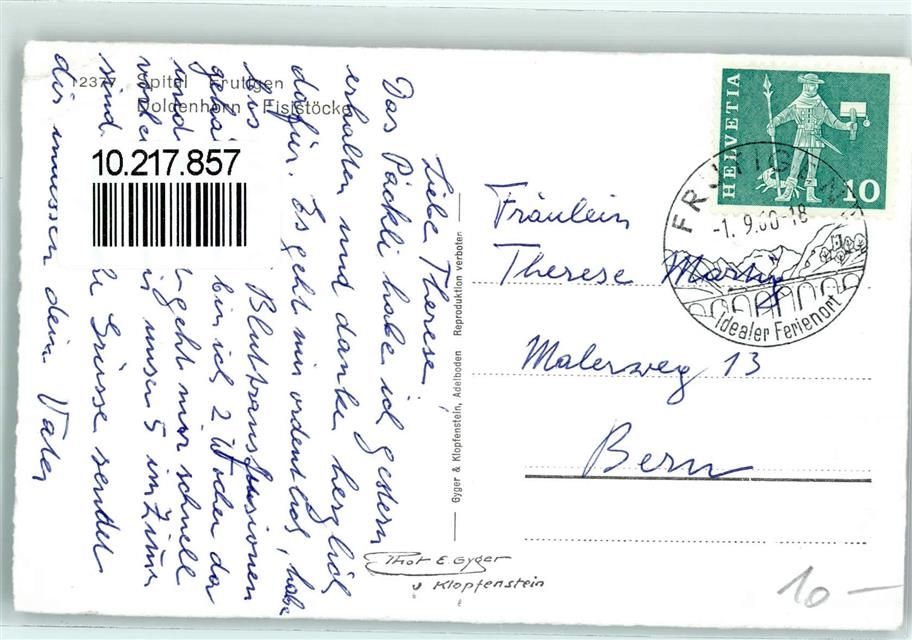 12377 Spital Frutigen
Doldenhorn Fisistöcke
10.217.857
Liebe Therese!
Das Päckli habe ich gestern
erhalten und danke herzlich
dafür. Es geht mir ordentlich, habe
Blutransfusionen
bin ich 2 Wochen da
und geht mir schnell
wir unser 5 im Zimmer
sind. Grüsse sendet
dir inwussen dein Vater
Gyger & Klopfenstein, Adelboden Reproduktion verboten
Phot E. Gyger
u Klopfenstein
HELVETIA
10
FRUTIGEN
-1. 9.60-18
Idealer Ferienort
Fräulein
Therese Marty
Malerweg 13
Bern
10 —